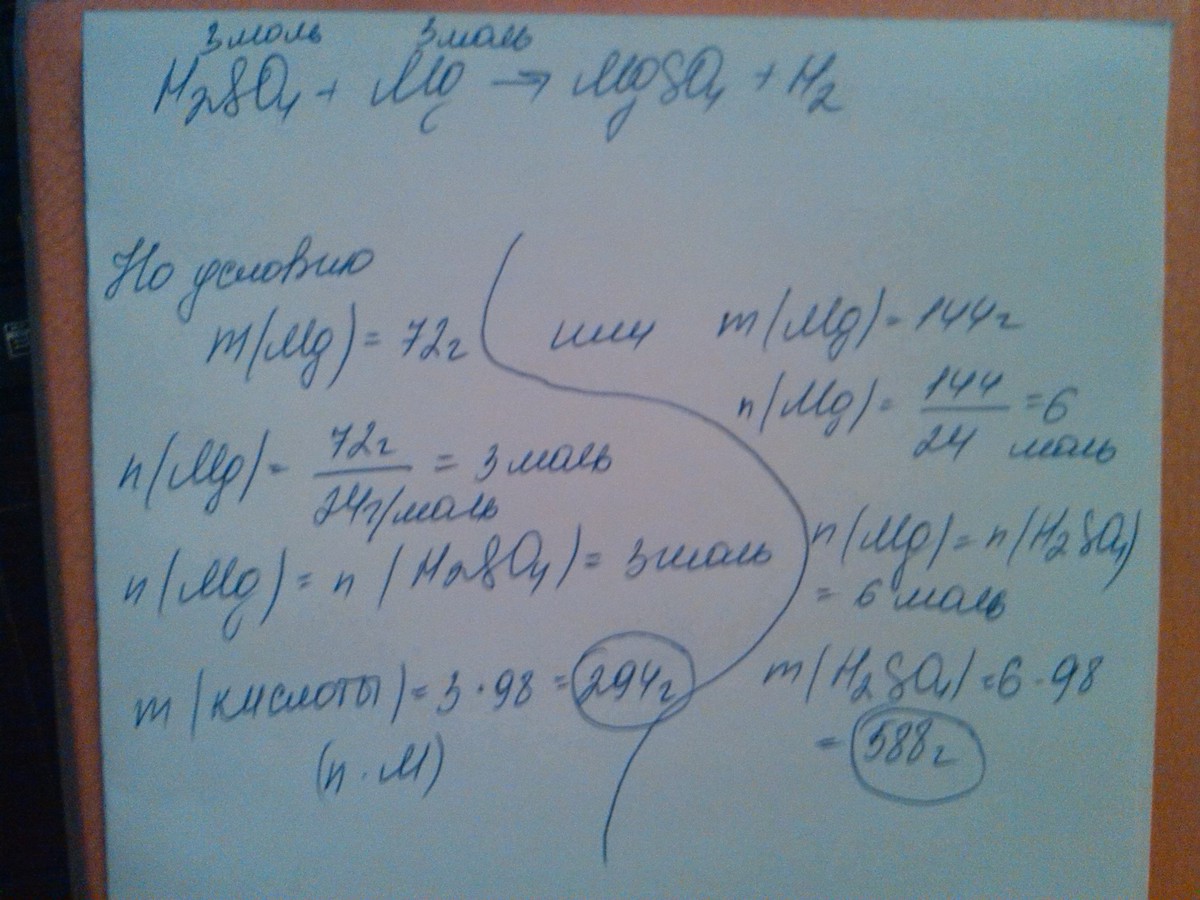 3 моль 3 моль
H₂SO₄ + Mg → MgSO₄ + H₂
По условию
m(Mg) = 72г
n(Mg) = 72г / 24г/моль = 3 моль
n(Mg) = n(H₂SO₄) = 3 моль
m(кислоты) = 3 · 98 = 294г
(n · M)
или
m(Mg) = 144г
n(Mg) = 144 / 24 = 6
моль
n(Mg) = n(H₂SO₄)
= 6 моль
m(H₂SO₄) = 6 · 98
= 588г